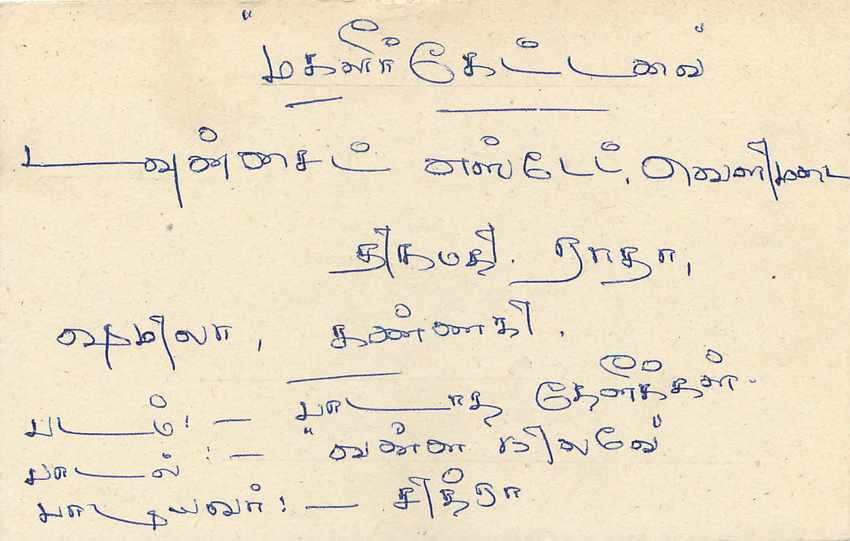 "மகளிர் கேட்டவை"
டவுன்சைட் எஸ்டேட், வெளிமடை
திருமதி. ராதா,
ஷர்மிலா, கண்ணகி.
படம்:- பாடாத தேனீக்கள்.
பாடல்:- "வண்ண நிலவே"
பாடியவர்:- சித்ரா